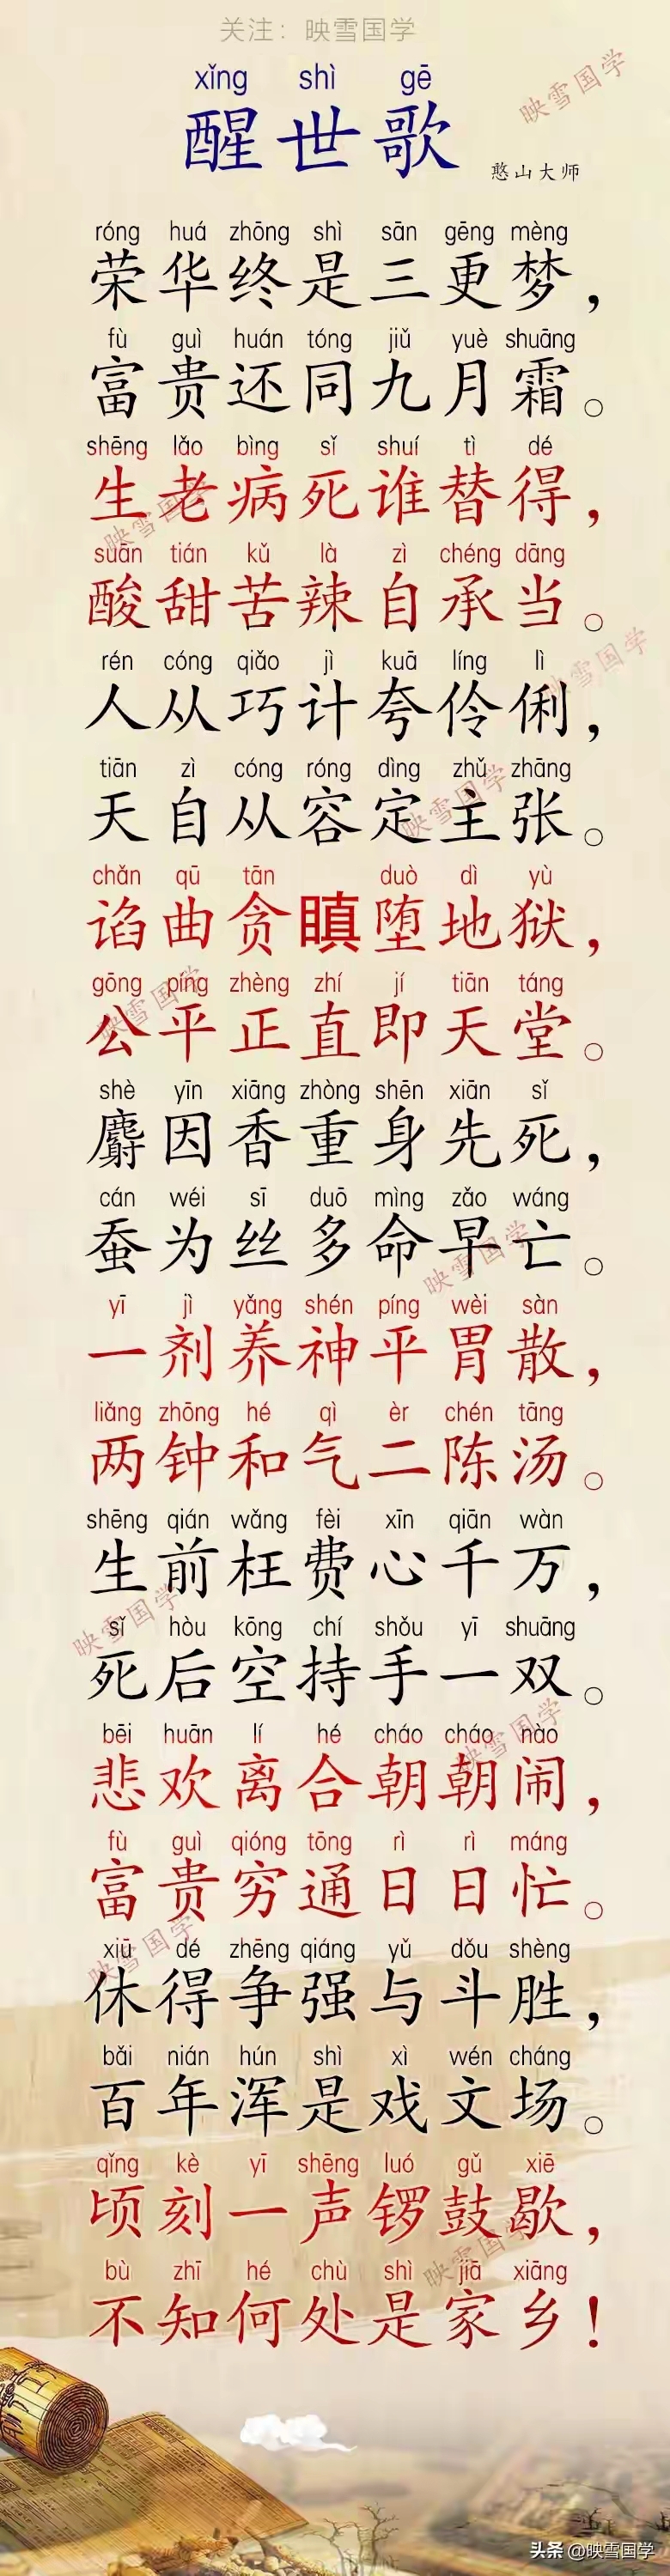 关注：映雪国学
xǐng shì gē
醒世歌
憨山大师
映雪国学
róng huá zhōng shì sān gēng mèng
荣华终是三更梦，
fù guì huán tóng jiǔ yuè shuāng
富贵还同九月霜。
shēng lǎo bìng sǐ shuí tì dé
生老病死谁替得，
映雪国学
suān tián kǔ là zì chéng dāng
酸甜苦辣自承当。
rén cóng qiǎo jì kuā líng lì
人从巧计夸伶俐，
映雪国学
tiān zì cóng róng dìng zhǔ zhāng
天自从容定主张。
映雪国学
chǎn qū tān duò dì yù
谄曲贪瞋堕地狱，
gōng píng zhèng zhí jí tiān táng
公平正直即天堂。
映雪国学
shè yīn xiāng zhòng shēn xiān sǐ
麝因香重身先死，
cán wéi sī duō mìng zǎo wáng
蚕为丝多命早亡。
映雪国学
yī jì yǎng shén píng wèi sàn
一剂养神平胃散，
liǎng zhōng hé qì èr chén tāng
两钟和气二陈汤。
shēng qián wǎng fèi xīn qiān wàn
生前枉费心千万，
映雪国学
sǐ hòu kōng chí shǒu yī shuāng
死后空持手一双。
bēi huān lí hé cháo cháo nào
悲欢离合朝朝闹，
映雪国学
fù guì qióng tōng rì rì máng
富贵穷通日日忙。
映雪国学
xiū dé zhēng qiáng yǔ dǒu shèng
休得争强与斗胜，
bǎi nián hún shì xì wén cháng
百年浑是戏文场。
qǐng kè yī shēng luó gǔ xiē
顷刻一声锣鼓歇，
映雪国学
bù zhī hé chù shì jiā xiāng
不知何处是家乡！
头条 @映雪国学